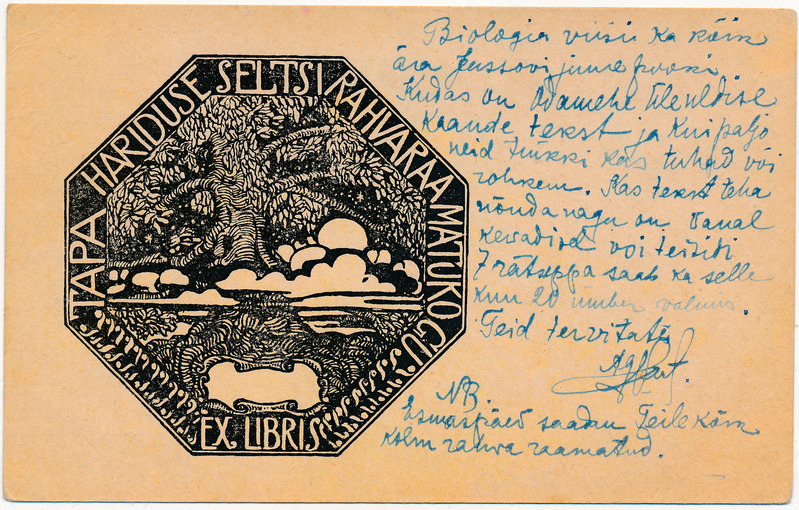 TAPA HARIDUSE SELTSI RAHVARAAMATUKOGU.
EX LIBRIS
Biologia viisi ka kõik
ära
Kudas on Odamehe Üleüldise
Kaande tekst ja Kui paljo
neid tükki kas tuhad või
rohkem. Kas tekst teha
nõnda nagu on Vanal
kewadisel või teisiti
7 rätseppa saab ka selle
kuu 20 ümber valmis.
Teid tervitate
NB.
Esmaspäev saadan Teile kõik
kolm rahwa raamatud.